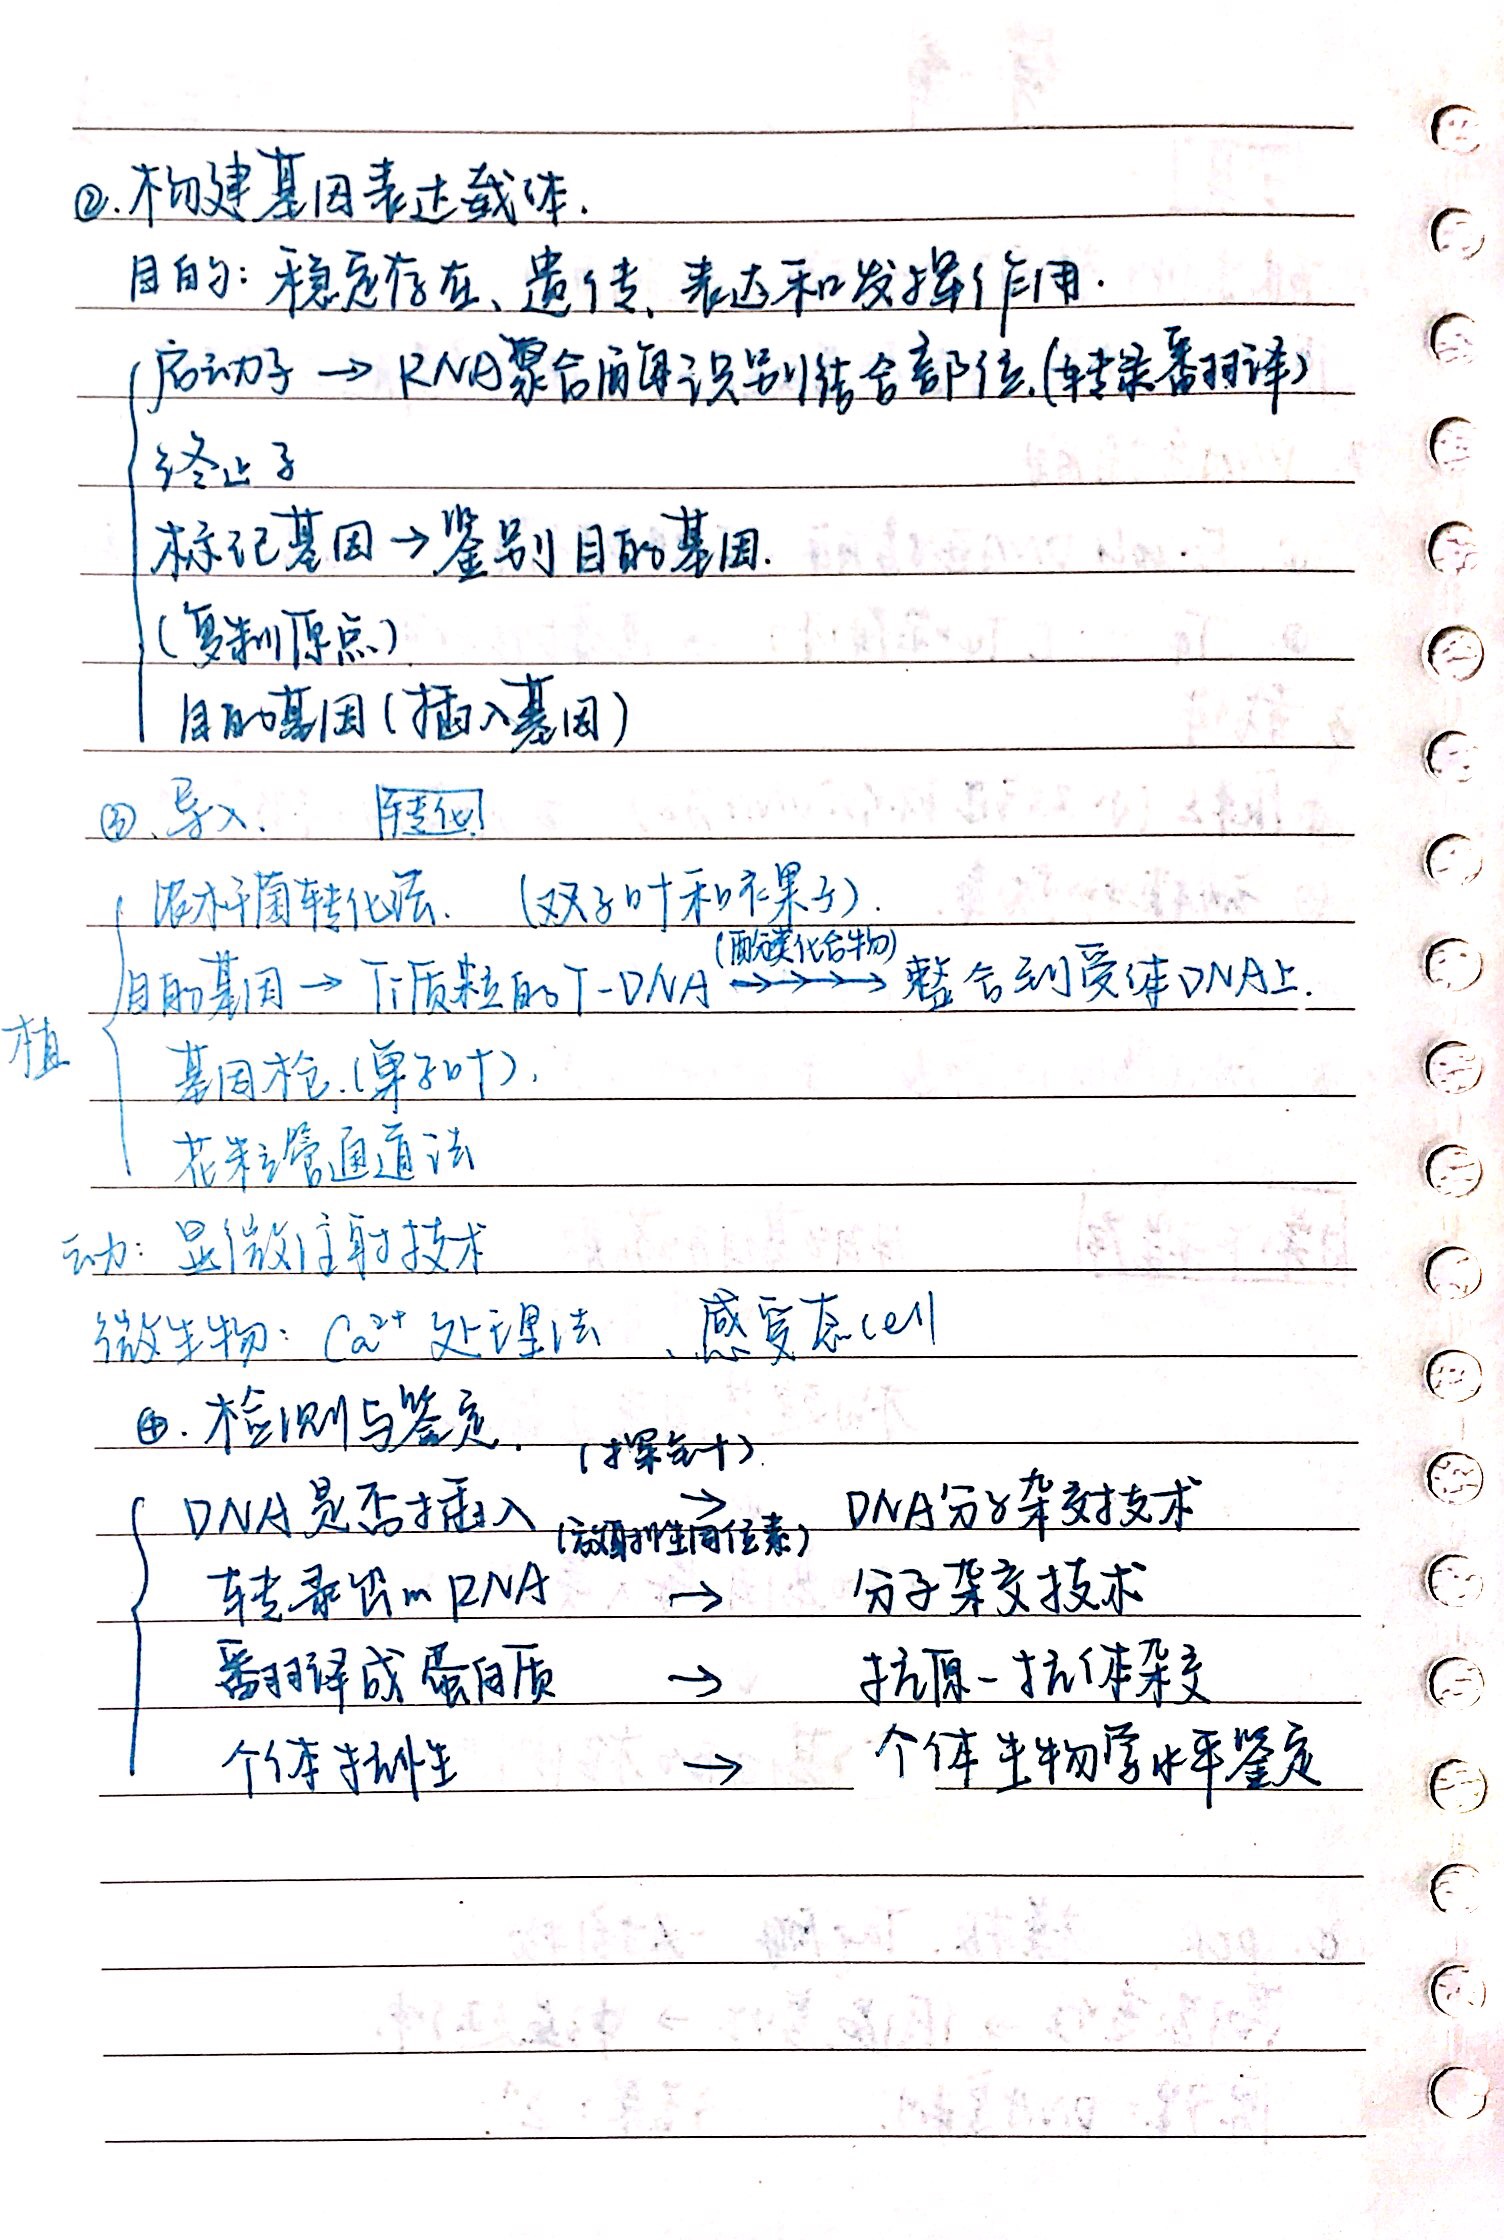 ②.构建基因表达载体.
目的:稳定存在、遗传、表达和发挥作用.
启动子 → RNA聚合酶识别结合部位.(转录翻译)
终止子
标记基因 → 鉴别目的基因.
(复制原点)
目的基因(插入基因)
③.导入. 转化
农杆菌转化法. (双子叶和裸子).
(酚类化合物)
目的基因 → Ti质粒的T-DNA →→→→ 整合到受体DNA上.
植
基因枪.(单子叶).
花粉管通道法
动:显微注射技术
微生物:Ca²⁺处理法、感受态cell
④.检测与鉴定.
(探针)
DNA是否插入 → DNA分子杂交技术
(放射性同位素)
转录出mRNA → 分子杂交技术
翻译成蛋白质 → 抗原-抗体杂交
个体抗性 → 个体生物学水平鉴定